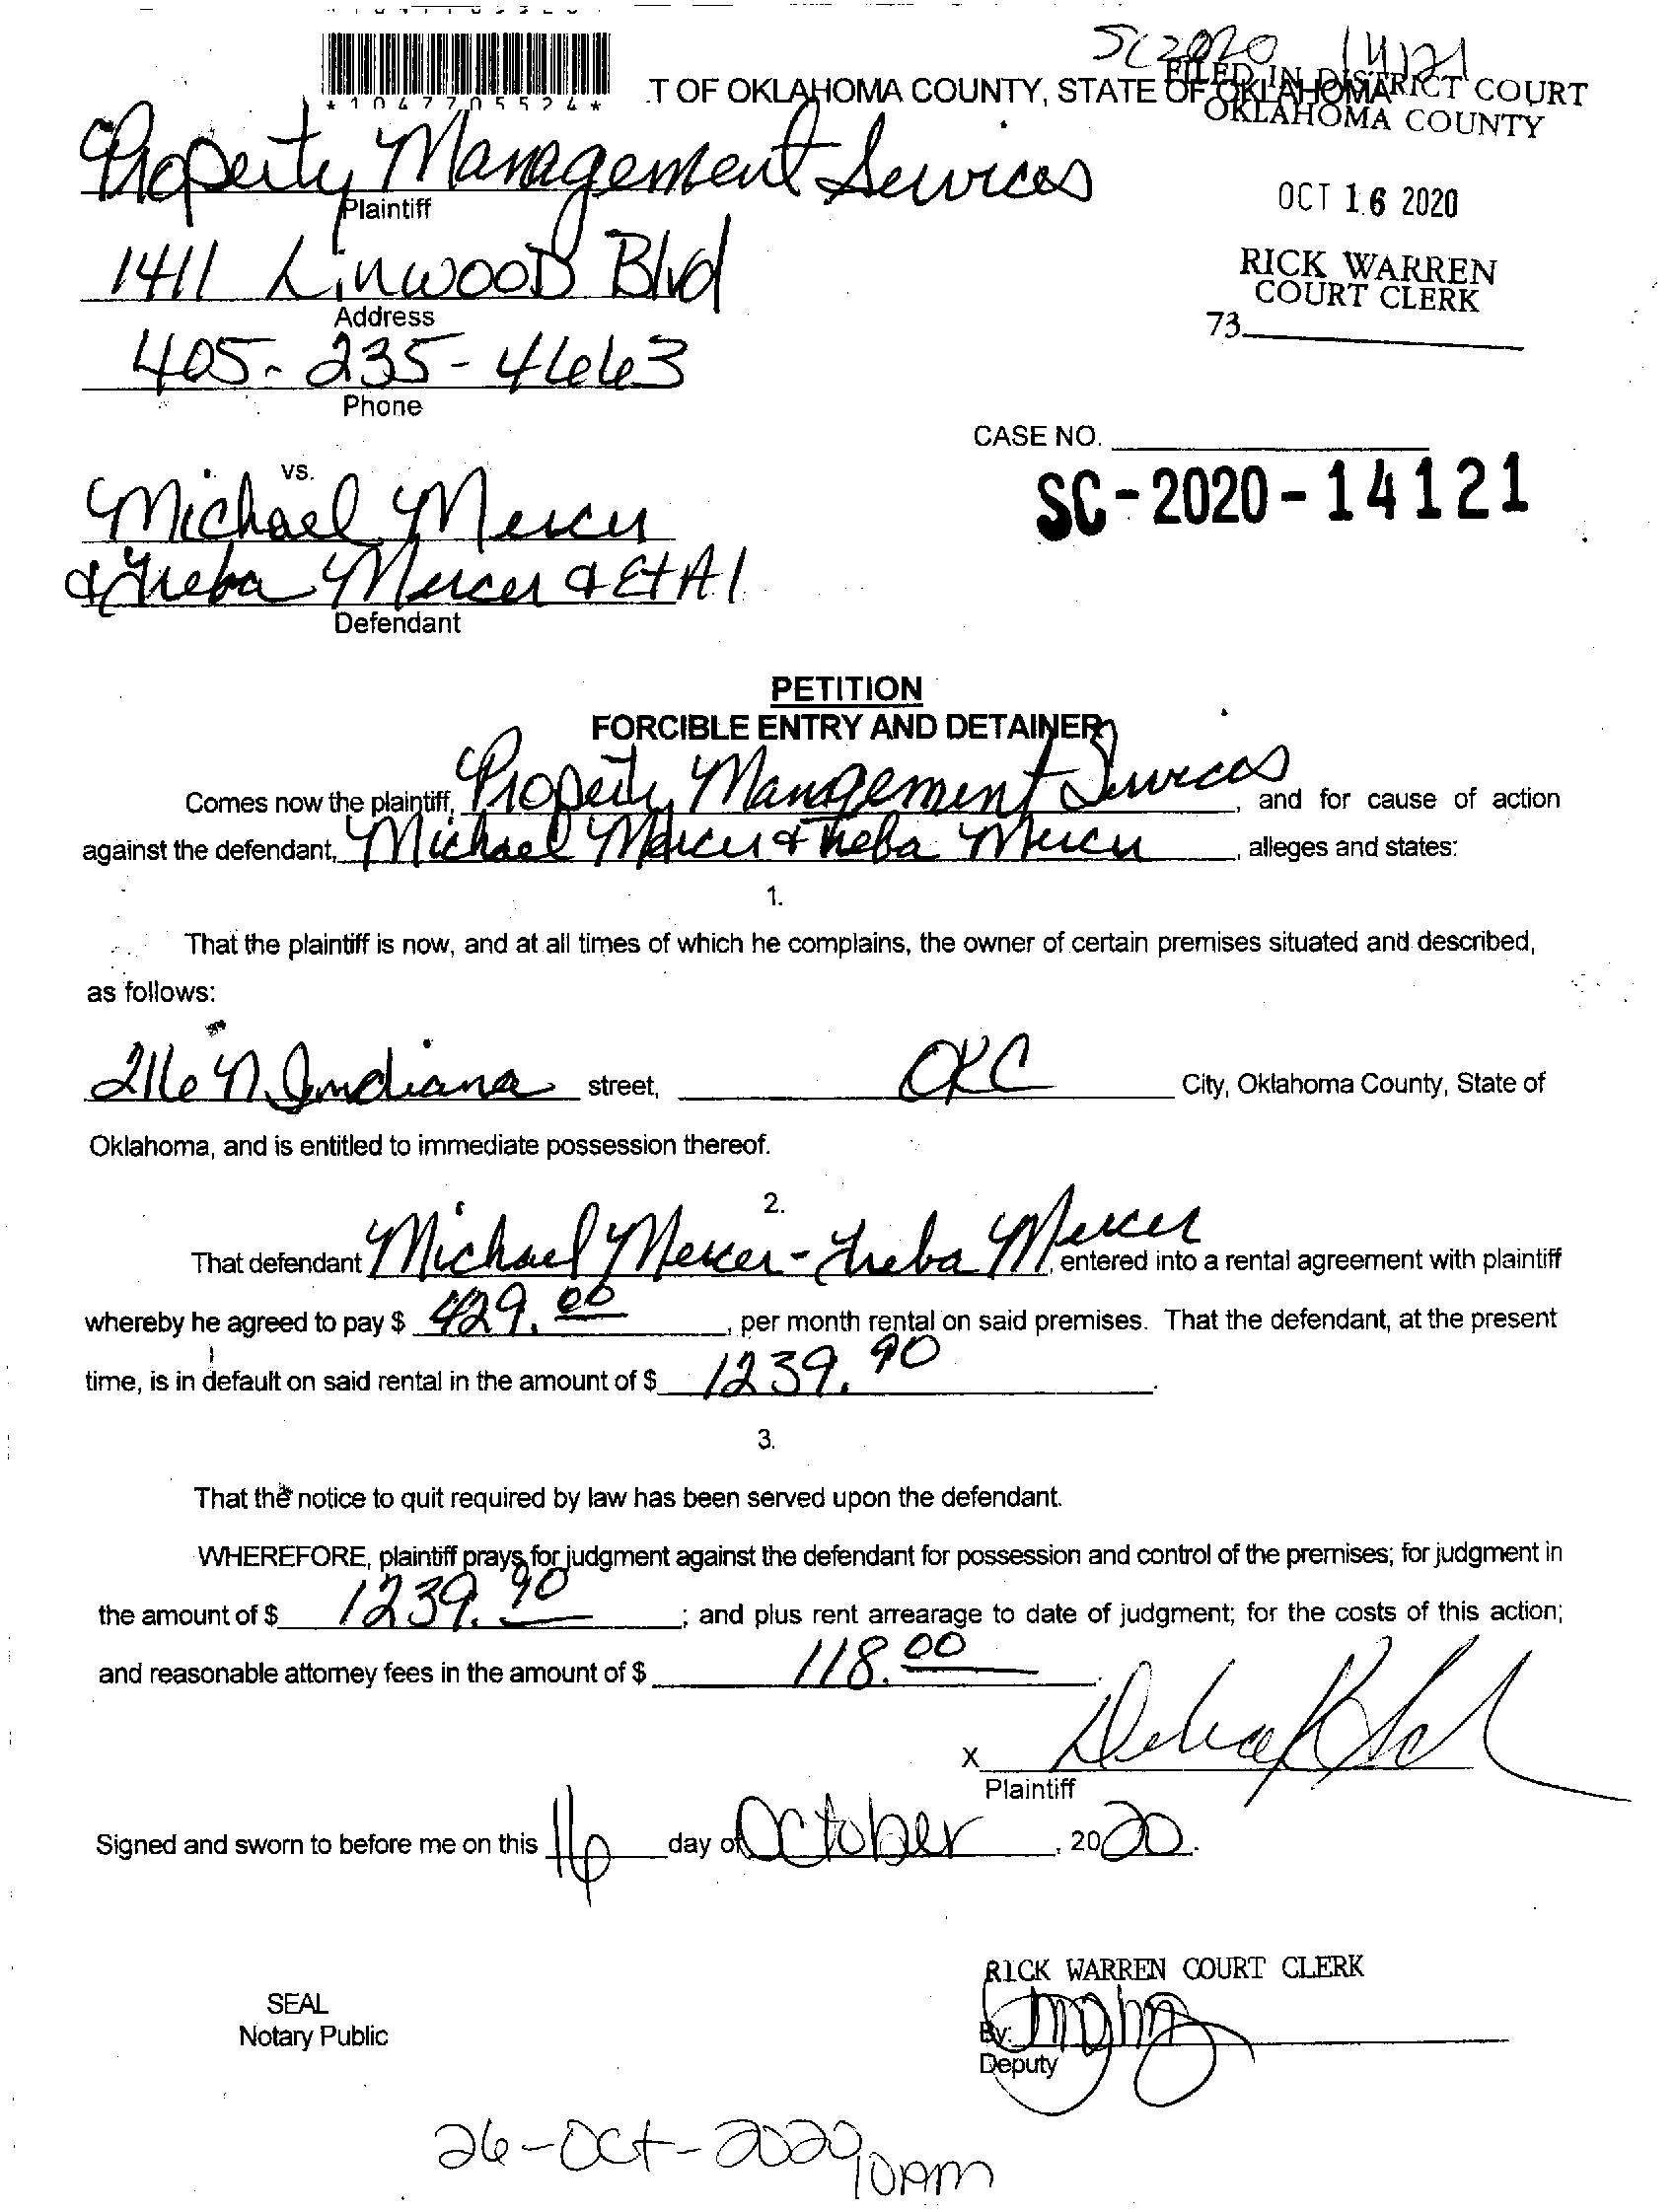 SC2020 14121
*1047705524*
T OF OKLAHOMA COUNTY, STATE OF OKLAHOMA
FILED IN DISTRICT COURT
OKLAHOMA COUNTY
Property Management Services
Plaintiff
OCT 16 2020
1411 Linwood Blvd
Address
RICK WARREN
COURT CLERK
73
405-235-4663
Phone
CASE NO.
SC-2020-14121
vs.
Michael Mercer
& Treba Mercer & Et Al
Defendant
PETITION
FORCIBLE ENTRY AND DETAINER
Comes now the plaintiff, Property Management Services, and for cause of action
against the defendant, Michael Mercer & Treba Mercer, alleges and states:
1.
That the plaintiff is now, and at all times of which he complains, the owner of certain premises situated and described,
as follows:
216 N. Indiana street, OKC City, Oklahoma County, State of
Oklahoma, and is entitled to immediate possession thereof.
2.
That defendant Michael Mercer - Treba Mercer, entered into a rental agreement with plaintiff
whereby he agreed to pay $ 429.00, per month rental on said premises. That the defendant, at the present
time, is in default on said rental in the amount of $ 1239.90.
3.
That the notice to quit required by law has been served upon the defendant.
WHEREFORE, plaintiff prays for judgment against the defendant for possession and control of the premises; for judgment in
the amount of $ 1239.90; and plus rent arrearage to date of judgment; for the costs of this action;
and reasonable attorney fees in the amount of $ 118.00.
X
Plaintiff
Signed and sworn to before me on this 16 day of October, 2020.
RICK WARREN COURT CLERK
SEAL
Notary Public
By:
Deputy
26-Oct-2020 10AM